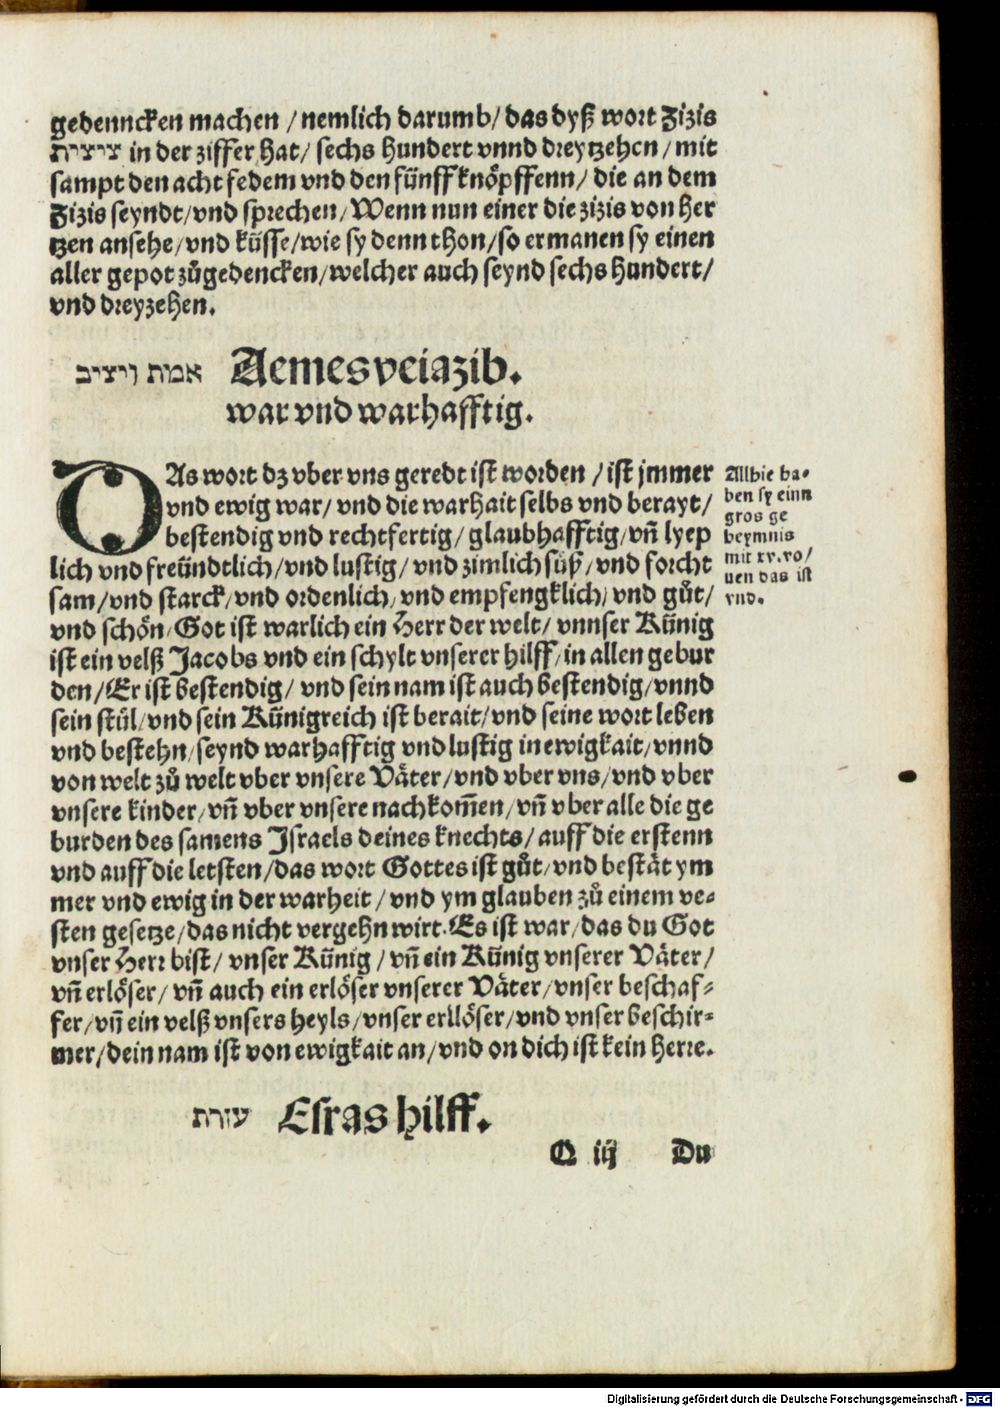 gedenncken machen / nemlich darumb / das dyß wort Zizis
ציצית in der ziffer hat / sechs hundert vnnd dreytzehen / mit
sampt den acht fedem vnd den fünff knöpffenn / die an dem
Zizis seyndt / vnd sprechen / Wenn nun einer die zizis von her
tzen ansehe / vnd küsse / wie sy denn thon / so ermanen sy einen
aller gepot zůgedencken / welcher auch seynd sechs hundert /
vnd dreyzehen.
אמת ויציב Aemes veiazib.
war vnd warhafftig.
DAs wort dz vber vns geredt ist worden / ist jmmer
vnd ewig war / vnd die warhait selbs vnd berayt /
bestendig vnd rechtfertig / glaubhafftig / vñ lyep
lich vnd freündtlich / vnd lustig / vnd zimlich süß / vnd forcht
sam / vnd starck / vnd ordenlich / vnd empfengklich / vnd gůt /
vnd schön / Got ist warlich ein Herr der welt / vnnser Künig
ist ein velß Jacobs vnd ein schylt vnserer hilff / in allen gebur
den / Er ist bestendig / vnd sein nam ist auch bestendig / vnnd
sein stůl / vnd sein Künigreich ist berait / vnd seine wort leben
vnd bestehn / seynd warhafftig vnd lustig in ewigkait / vnnd
von welt zů welt vber vnsere Väter / vnd vber vns / vnd vber
vnsere kinder / vñ vber vnsere nachkom̃en / vñ vber alle die ge
burden des samens Jsraels deines knechts / auff die erstenn
vnd auff die letsten / das wort Gottes ist gůt / vnd bestät ym
mer vnd ewig in der warheit / vnd ym glauben zů einem ve-
sten gesetze / das nicht vergehn wirt. Es ist war / das du Got
vnser Herr bist / vnser Künig / vñ ein Künig vnserer Väter /
vñ erlöser / vñ auch ein erlöser vnserer Väter / vnser beschaf-
fer / vñ ein velß vnsers heyls / vnser erllöser / vnd vnser beschir-
mer / dein nam ist von ewigkait an / vnd on dich ist kein herre.
Allhie ha-
ben sy einn
gros ge
heymnis
mit xv. vo /
uen das ist
vnd.
עזרת Esras hilff.
Q iij Du
Digitalisierung gefördert durch die Deutsche Forschungsgemeinschaft - DFG